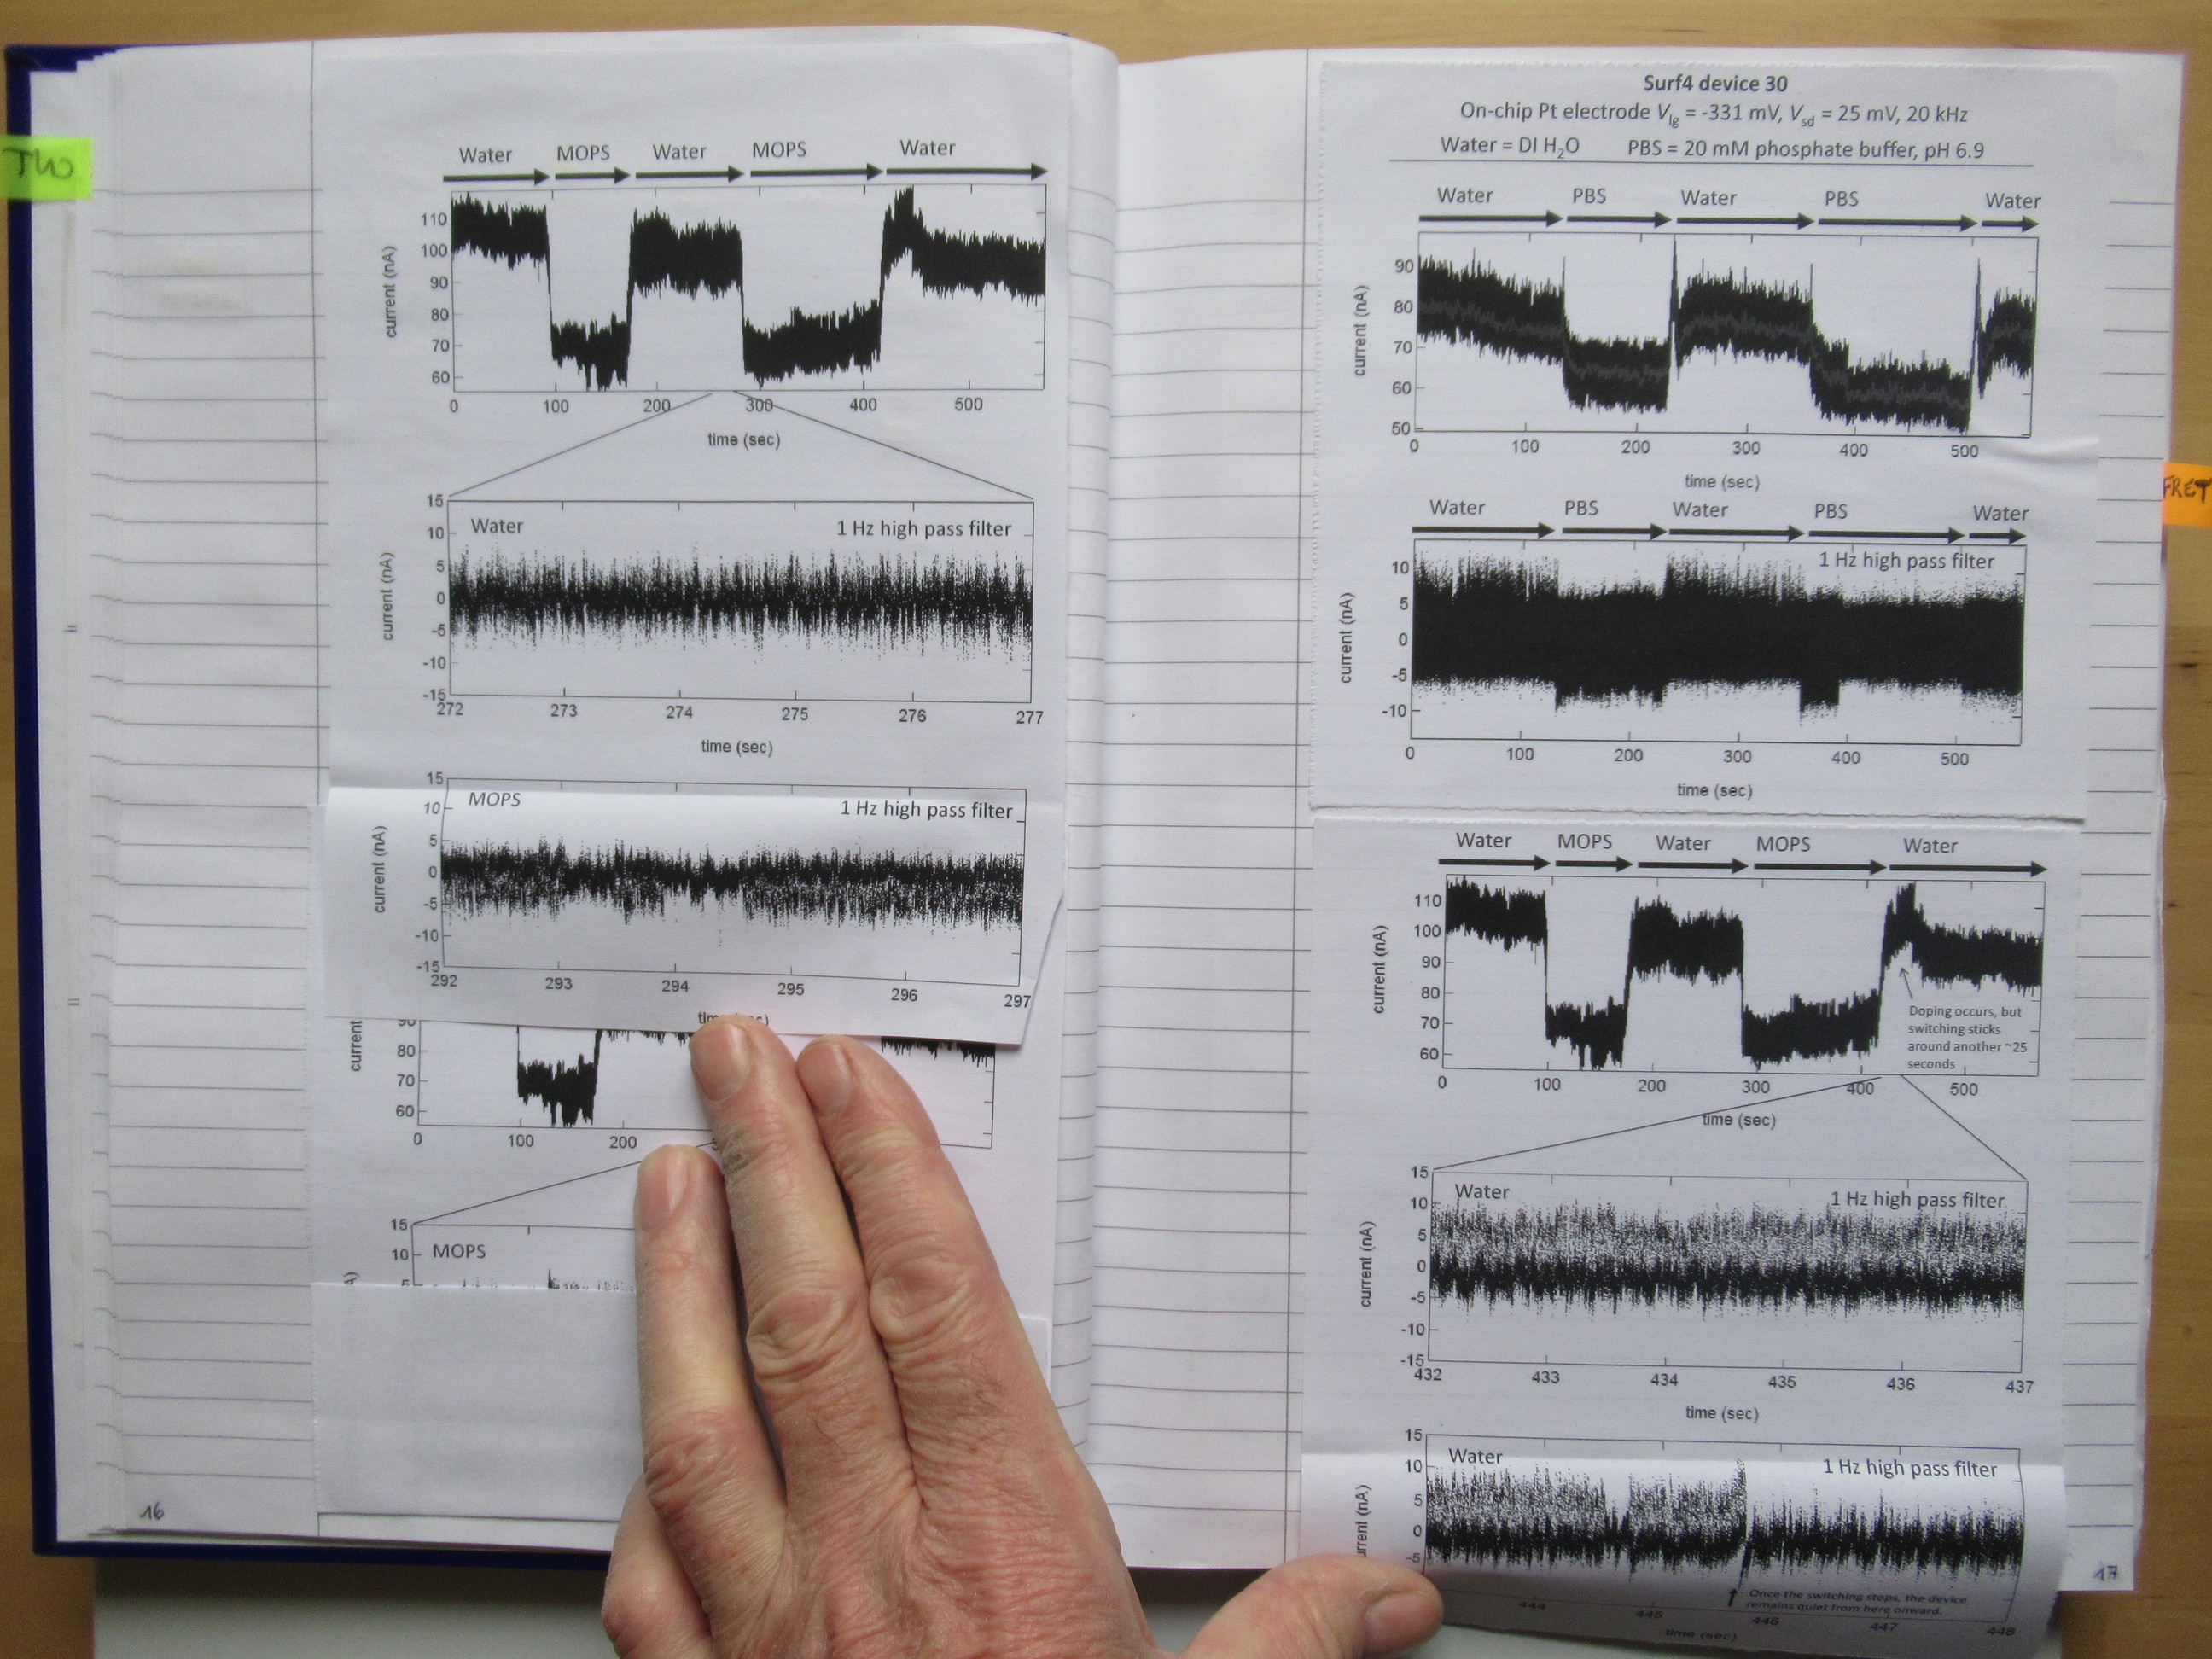 TWO
Water MOPS Water MOPS Water
110
100
90
80
70
60
current (nA)
0 100 200 300 400 500
time (sec)
15
10
5
0
-5
-10
-15
current (nA)
Water 1 Hz high pass filter
272 273 274 275 276 277
time (sec)
15
10
5
0
-5
-10
-15
current (nA)
MOPS 1 Hz high pass filter
292 293 294 295 296 297
90
80
70
60
current
0 100 200
15
10
5
MOPS
16
Surf4 device 30
On-chip Pt electrode Vlg = -331 mV, Vsd = 25 mV, 20 kHz
Water = DI H2O PBS = 20 mM phosphate buffer, pH 6.9
Water PBS Water PBS Water
90
80
70
60
50
current (nA)
0 100 200 300 400 500
time (sec)
Water PBS Water PBS Water
1 Hz high pass filter
10
5
0
-5
-10
current (nA)
0 100 200 300 400 500
time (sec)
FRET
Water MOPS Water MOPS Water
110
100
90
80
70
60
current (nA)
Doping occurs, but
switching sticks
around another ~25
seconds
0 100 200 300 400 500
time (sec)
15
10
5
0
-5
-10
-15
current (nA)
Water 1 Hz high pass filter
432 433 434 435 436 437
time (sec)
15
10
5
0
-5
Water 1 Hz high pass filter
(nA)
Once the switching stops, the device
remains quiet from here onward.
444 445 446 447 448
time (sec)
17